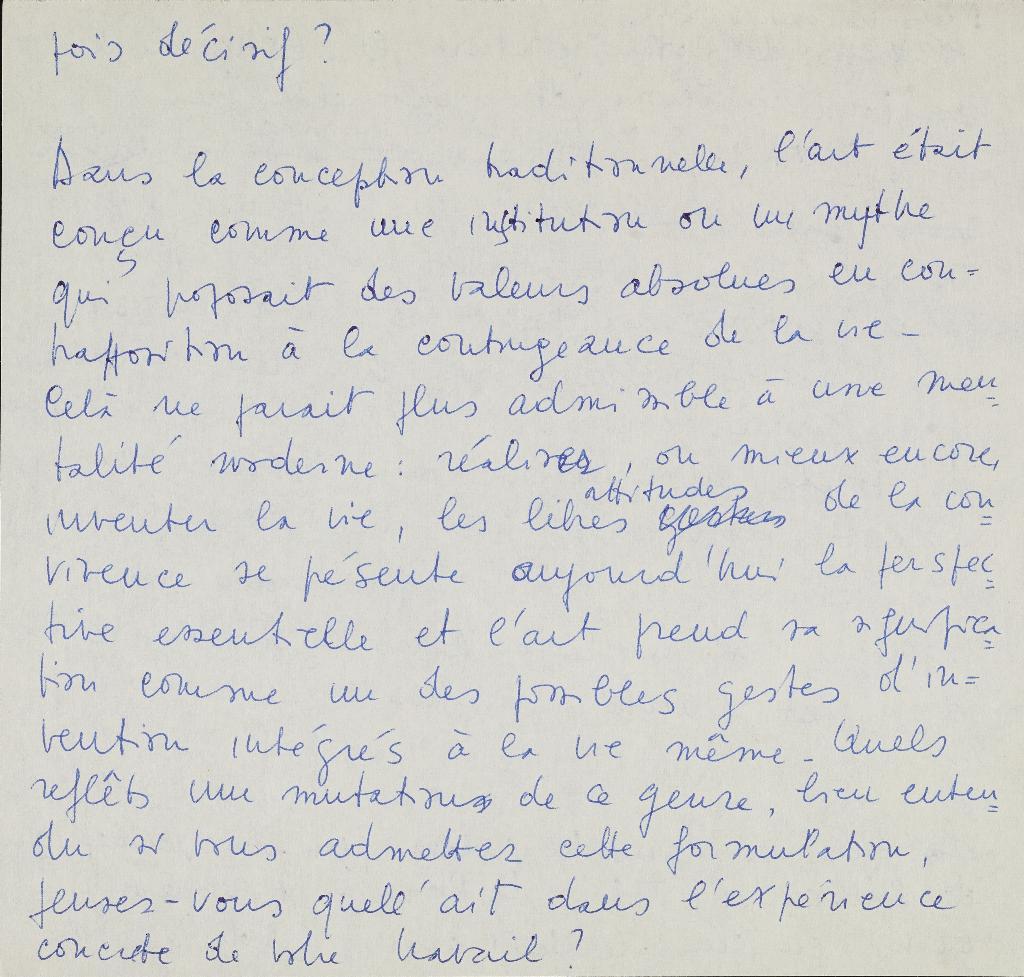 fois décisif ?
Dans la conception traditionnelle, l'art était
conçu comme une institution ou un mythe
qui posait des valeurs absolues en con=
trapposition à la contingeance de la vie -
Celà ne parait plus admissible à une men=
talité moderne : réaliser, ou mieux encore,
inventer la vie, les libres attitudes de la con=
vivence se présente aujourd'hui la perspec=
tive essentielle et l'art prend sa significa=
tion comme un des possibles gestes d'in=
vention intégrés à la vie même - Quels
reflêts une mutation de ce genre, bien enten=
du si vous admettez cette formulation,
pensez-vous quell' ait dans l'expérience
concrete de votre travail ?